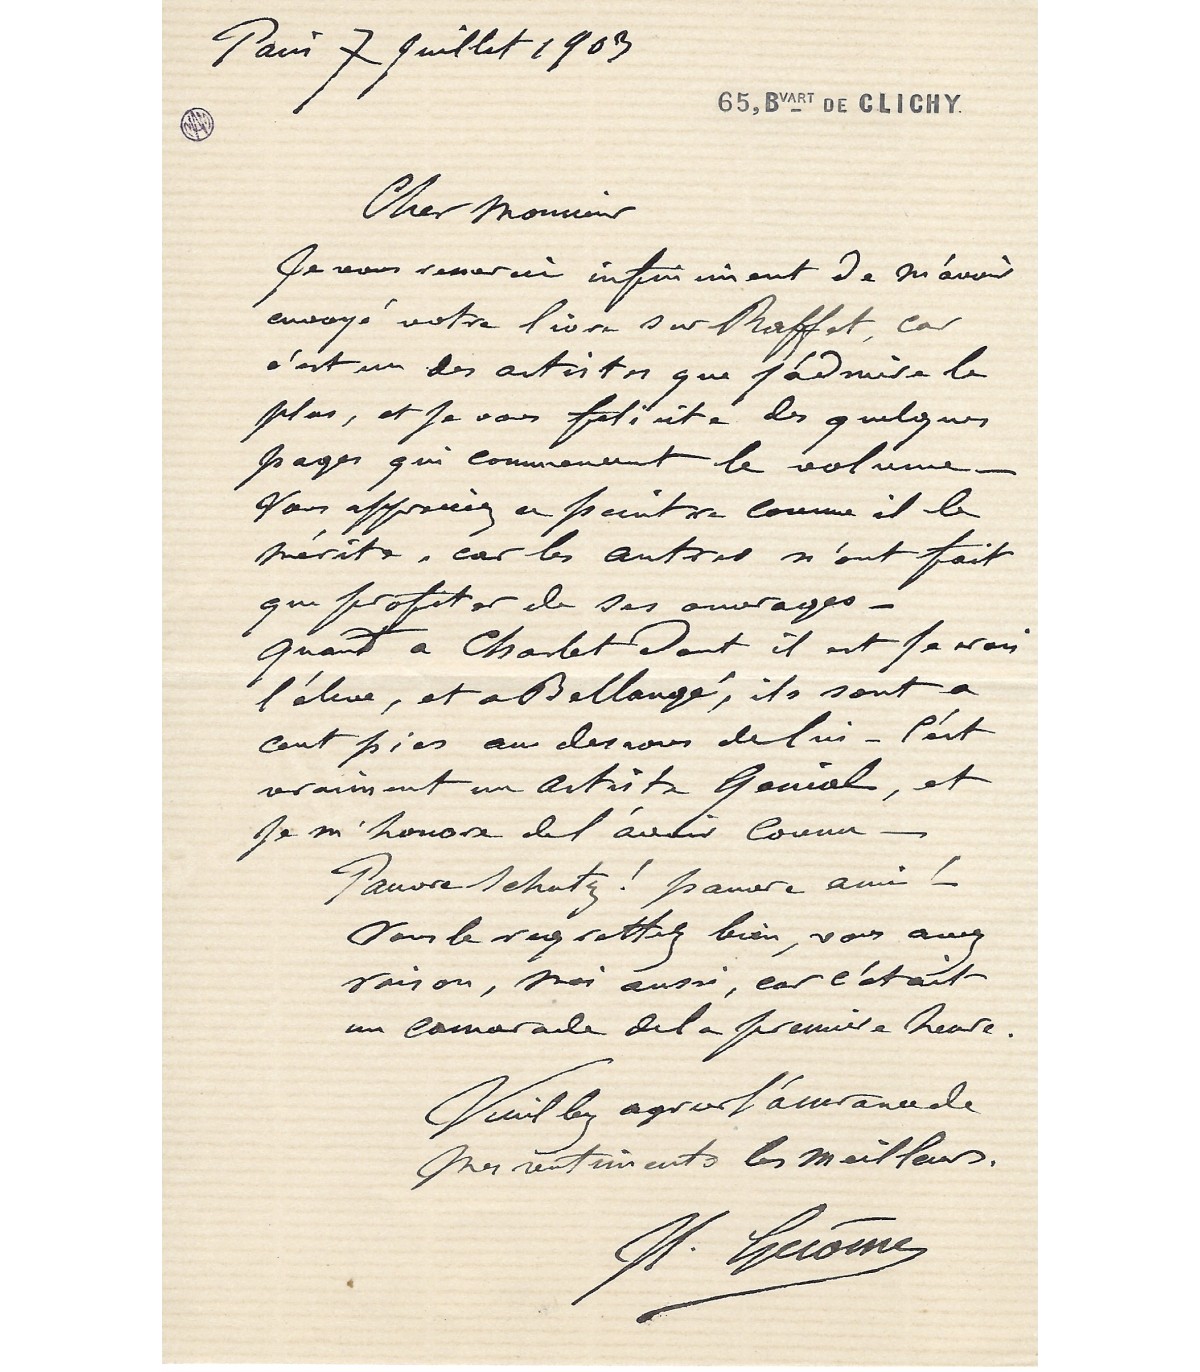 Paris 7 Juillet 1903
65, BVART DE CLICHY.
Cher Monsieur
Je vous remercie infiniment de m'avoir
envoyé votre livre sur Raffet, car
c'est un des artistes que j'admire le
plus, et je vous felicite des quelques
pages qui commencent le volume —
Vous appreciez ce peintre comme il le
mérite, car les autres n'ont fait
que profiter de ses ouvrages —
Quand a Charlet dont il est je crois
l'éleve, et a Bellangé, ils sont a
cent pies au dessous de lui — C'est
vraiment un artiste Genial, et
je m'honore de l'avoir connu —
Pauvre Schutz! pauvre ami!
Vous le regrettez bien, vous avez
raison, moi aussi, car c'était
un camarade de la premiere heure.
Veuillez agreer l'assurance de
mes sentiments les meilleurs.
Gerôme